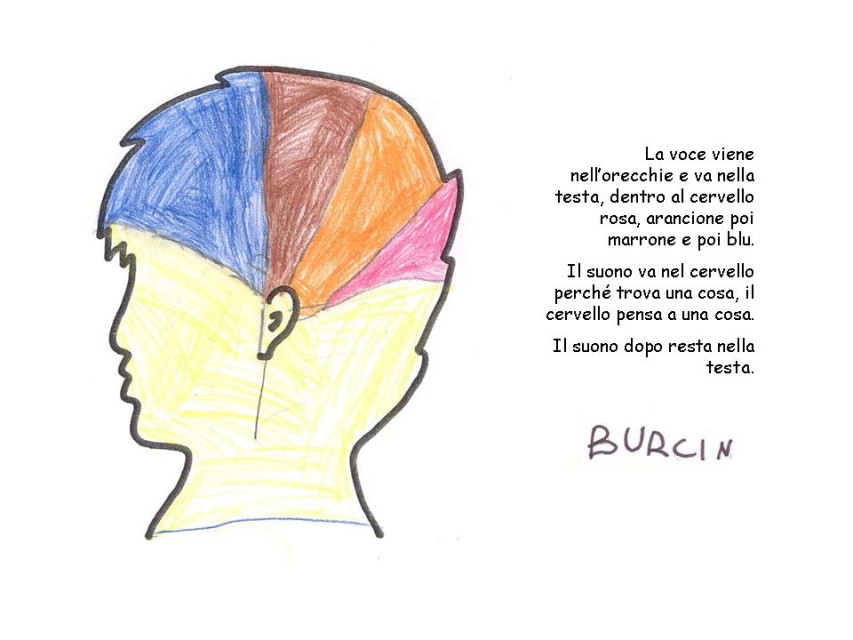 La voce viene
nell'orecchie e va nella
testa, dentro al cervello
rosa, arancione poi
marrone e poi blu.
Il suono va nel cervello
perché trova una cosa, il
cervello pensa a una cosa.
Il suono dopo resta nella
testa.
BURCIN